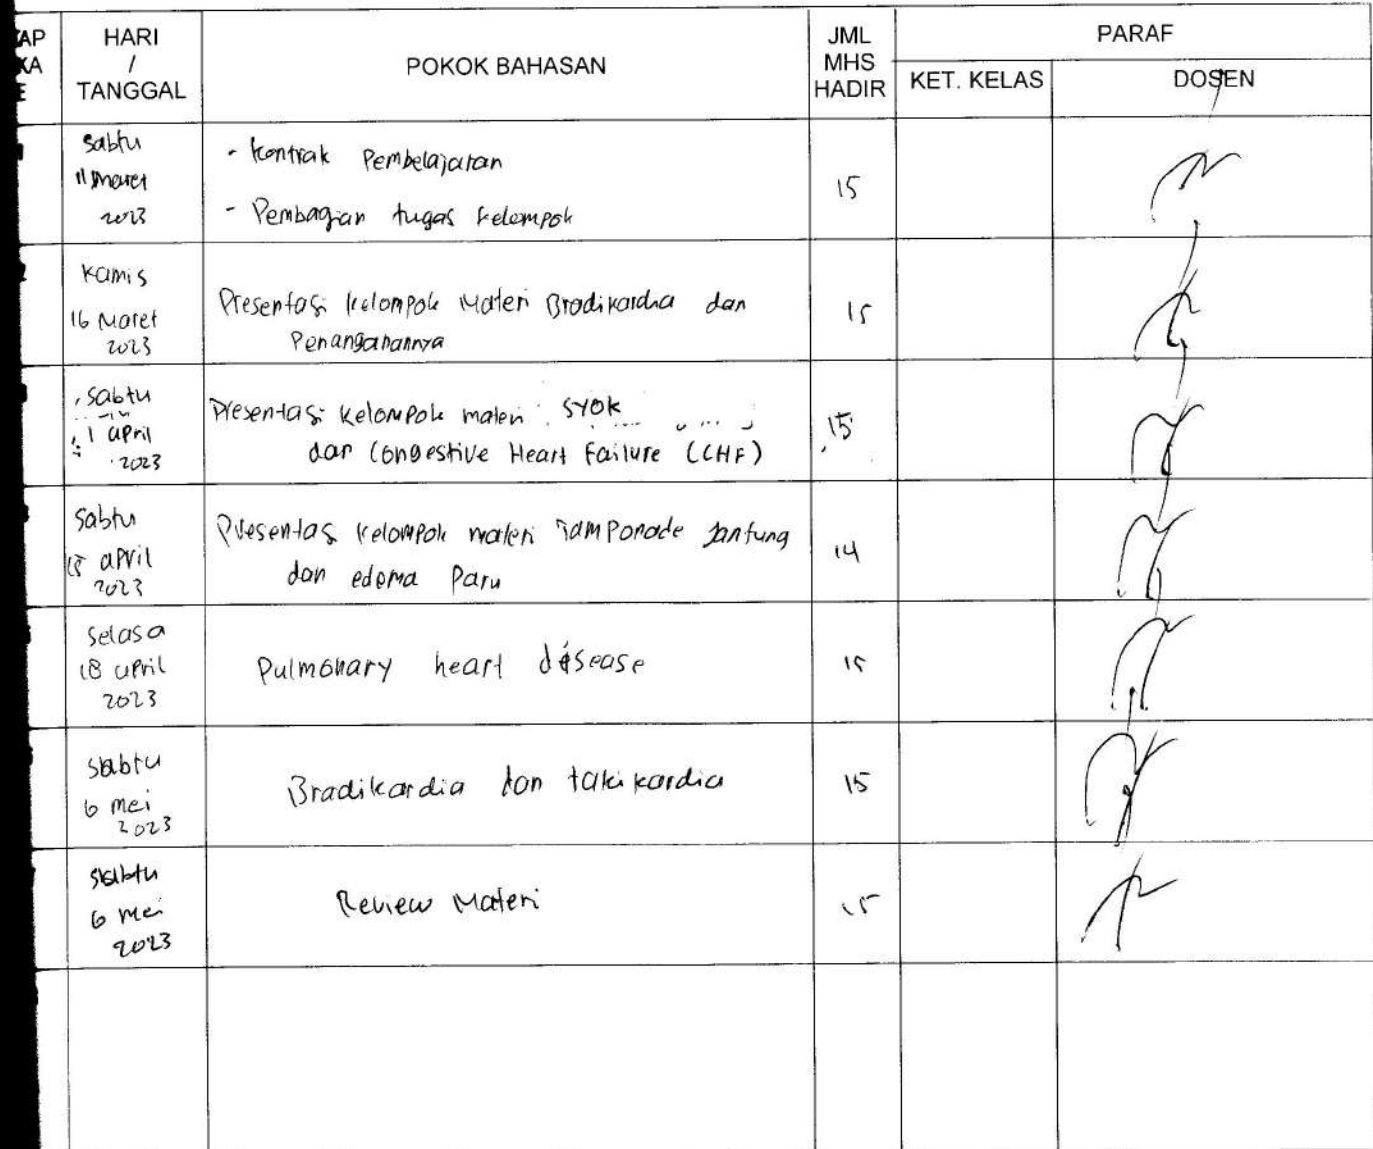 HARI
/
TANGGAL
POKOK BAHASAN
JML
MHS
HADIR
PARAF
KET. KELAS
DOSEN
sabtu
11 maret
2023
- kontrak Pembelajaran
- Pembagian tugas kelompok
15
kamis
16 Maret
2023
Presentasi kelompok Materi Bradikardia dan
Penanganannya
15
sabtu
1 april
2023
Presentasi kelompok materi syok
dan Congestive Heart Failure (CHF)
15
Sabtu
april
2023
Presentasi kelompok materi Tamponade Jantung
dan edema Paru
14
Selasa
18 april
2023
Pulmonary heart disease
15
sabtu
6 mei
2023
Bradikardia dan takikardia
15
sabtu
6 mei
2023
Review Materi
15